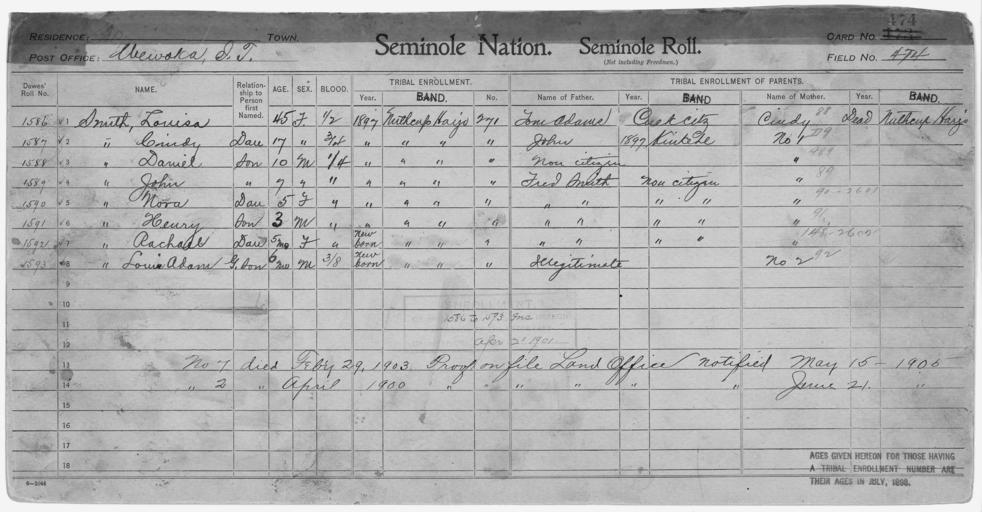 474
RESIDENCE: TOWN. Seminole Nation. Seminole Roll. CARD NO.
POST OFFICE: Wewoka, I. T. (Not including Freedmen.) FIELD NO. 474
TRIBAL ENROLLMENT. TRIBAL ENROLLMENT OF PARENTS.
Dawes' Roll No. NAME. Relationship to Person first Named. AGE. SEX. BLOOD. Year. BAND. No. Name of Father. Year. BAND Name of Mother. Year. BAND.
1586 1 Smith, Louisa 45 F 1/2 1897 Nuthcup Harjo 271 Tom Adams Creek citz Cindy Dead Nuthcup Harjo
1587 2 " Cindy Dau 17 " 3/4 " " " " John 1897 No 1
1588 3 " Daniel Son 10 M 1/4 " " " " Non citizen "
1589 4 " John " 7 " " " " " " Fred Smith Non citizen "
1590 5 " Nora Dau 5 F " " " " " " " " " "
1591 6 " Henry Son 3 M " " " " " " " " " "
1592 7 " Rachael Dau 5 mo F " New born " " " " " " " "
1593 8 " Louis Adam G. Son 6 mo M 3/8 New born " " " Illegitimate No 2
9
10
ENROLLMENT
1586 to 1593 Inc
11
Apr 2 1901
12
13 No 7 died Feby 29, 1903 Proof on file Land Office notified May 15 - 1905
14 " 2 " April 1900 " " " " " " June 21. "
15
16
17
18
AGES GIVEN HEREON FOR THOSE HAVING
A TRIBAL ENROLLMENT NUMBER ARE
THEIR AGES IN JULY, 1898.